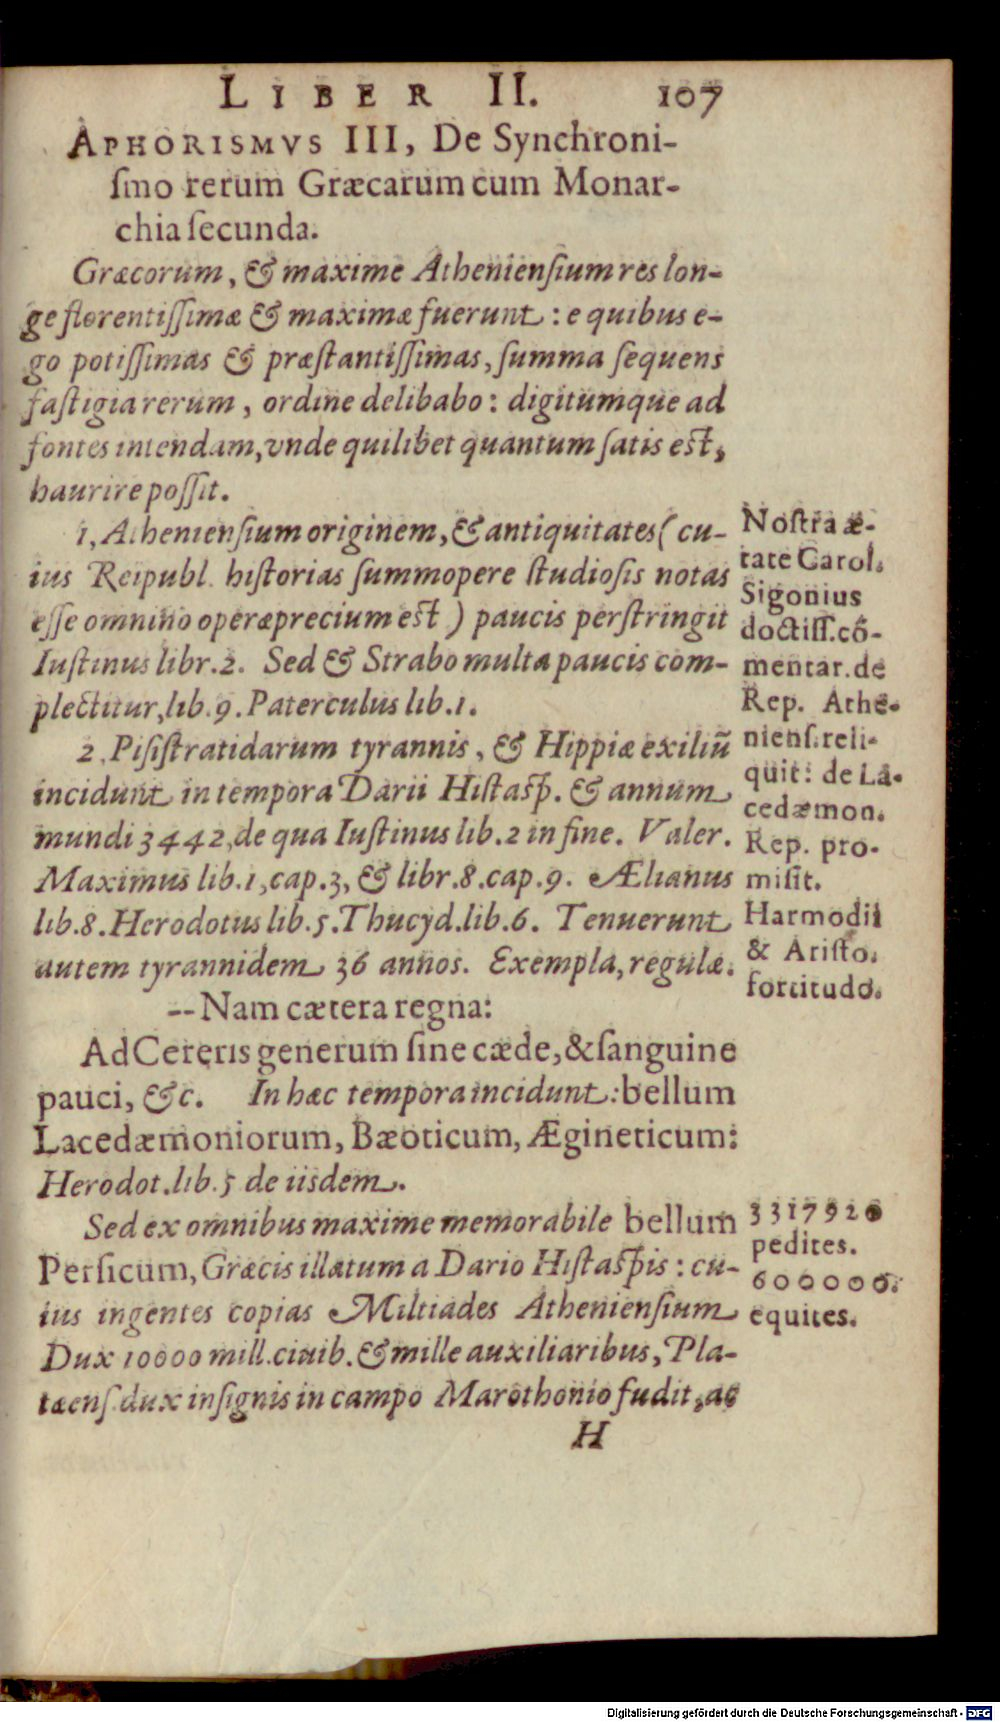 LIBER II. 107
APHORISMVS III, De Synchroni-
ſmo rerum Græcarum cum Monar-
chia ſecunda.
Græcorum, & maxime Athenienſium res lon-
ge florentiſſimæ & maximæ fuerunt: e quibus e-
go potiſſimas & præſtantiſſimas, ſumma ſequens
faſtigia rerum, ordine delibabo: digitumque ad
fontes intendam, vnde quilibet quantum ſatis eſt,
haurire poſſit.
1, Athenienſium originem, & antiquitates (cu-
ius Reipubl. hiſtorias ſummopere ſtudioſis notas
eſſe omnino operæprecium eſt) paucis perſtringit
Iuſtinus libr. 2. Sed & Strabo multa paucis com-
plectitur, lib. 9. Paterculus lib. 1.
Noſtra æ-
tate Carol.
Sigonius
doctiſſ. cō-
mentar. de
Rep. Athe-
nienſ. reli-
quit: de La-
cedæmon.
Rep. pro-
miſit.
2, Piſiſtratidarum tyrannis, & Hippiæ exiliū
incidunt in tempora Darii Hiſtaſp. & annum
mundi 3442, de qua Iuſtinus lib. 2 in fine. Valer.
Maximus lib. 1, cap. 3, & libr. 8. cap. 9. Ælianus
lib. 8. Herodotus lib. 5. Thucyd. lib. 6. Tenuerunt
autem tyrannidem 36 annos. Exempla, regulæ.
Harmodii
& Ariſto.
fortitudo.
--Nam cætera regna:
Ad Cereris generum ſine cæde, & ſanguine
pauci, &c. In hæc tempora incidunt: bellum
Lacedæmoniorum, Bæoticum, Ægineticum:
Herodot. lib. 5 de iisdem.
Sed ex omnibus maxime memorabile bellum
Perſicum, Græcis illatum a Dario Hiſtaſpis: cu-
ius ingentes copias Miltiades Athenienſium
Dux 10000 mill. ciuib. & mille auxiliaribus, Pla-
tæenſ. dux inſignis in campo Marothonio fudit, ac
3317920
pedites.
600000.
equites.
H
Digitalisierung gefördert durch die Deutsche Forschungsgemeinschaft - DFG